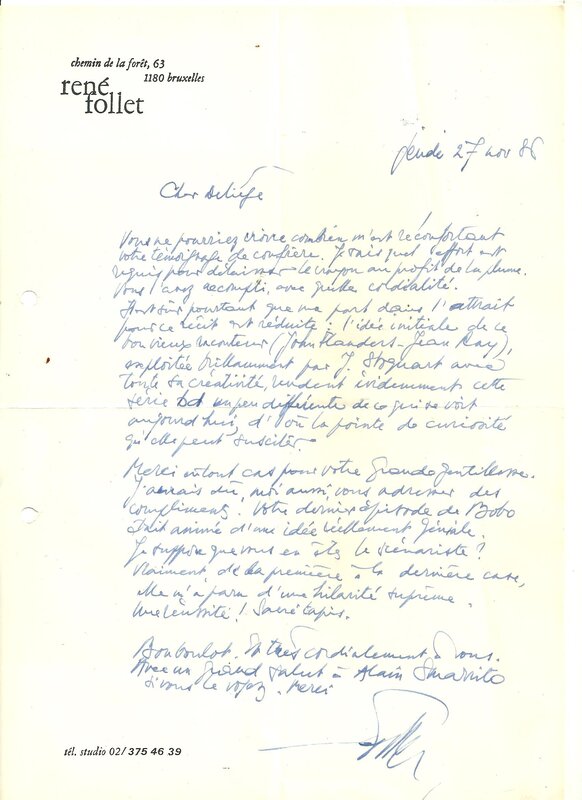 chemin de la forêt, 63
1180 bruxelles
rené
follet
jeudi 27 nov 86
Cher Deliège
Vous ne pourriez croire combien m'est réconfortant
votre témoignage de confrère. Je sais quel effort est
requis pour délaisser le crayon au profit de la plume.
Vous l'avez accompli, avec quelle cordialité.
Il est sûr pourtant que ma part dans l'attrait
pour ce récit est réduite : l'idée initiale de ce
bon vieux raconteur (John Flanders - Jean Ray),
exploitée brillamment par J. Stoquart avec
toute sa créativité, rendent évidemment cette
série bd un peu différente de ce qui se voit
aujourd'hui, d'où la pointe de curiosité
qu'elle peut susciter.
Merci en tout cas pour votre grande gentillesse.
J'aurais dû, moi aussi, vous adresser des
compliments. Votre dernier épisode de Bobo
était animé d'une idée réellement géniale.
Je suppose que vous en êtes le scénariste ?
Vraiment, de la première à la dernière case,
elle m'a paru d'une hilarité suprême.
Une réussite ! Sacré tapis.
Bon boulot. Et très cordialement à vous.
Avec un grand salut à Alain
si vous le voyez. Merci
tél. studio 02/ 375 46 39